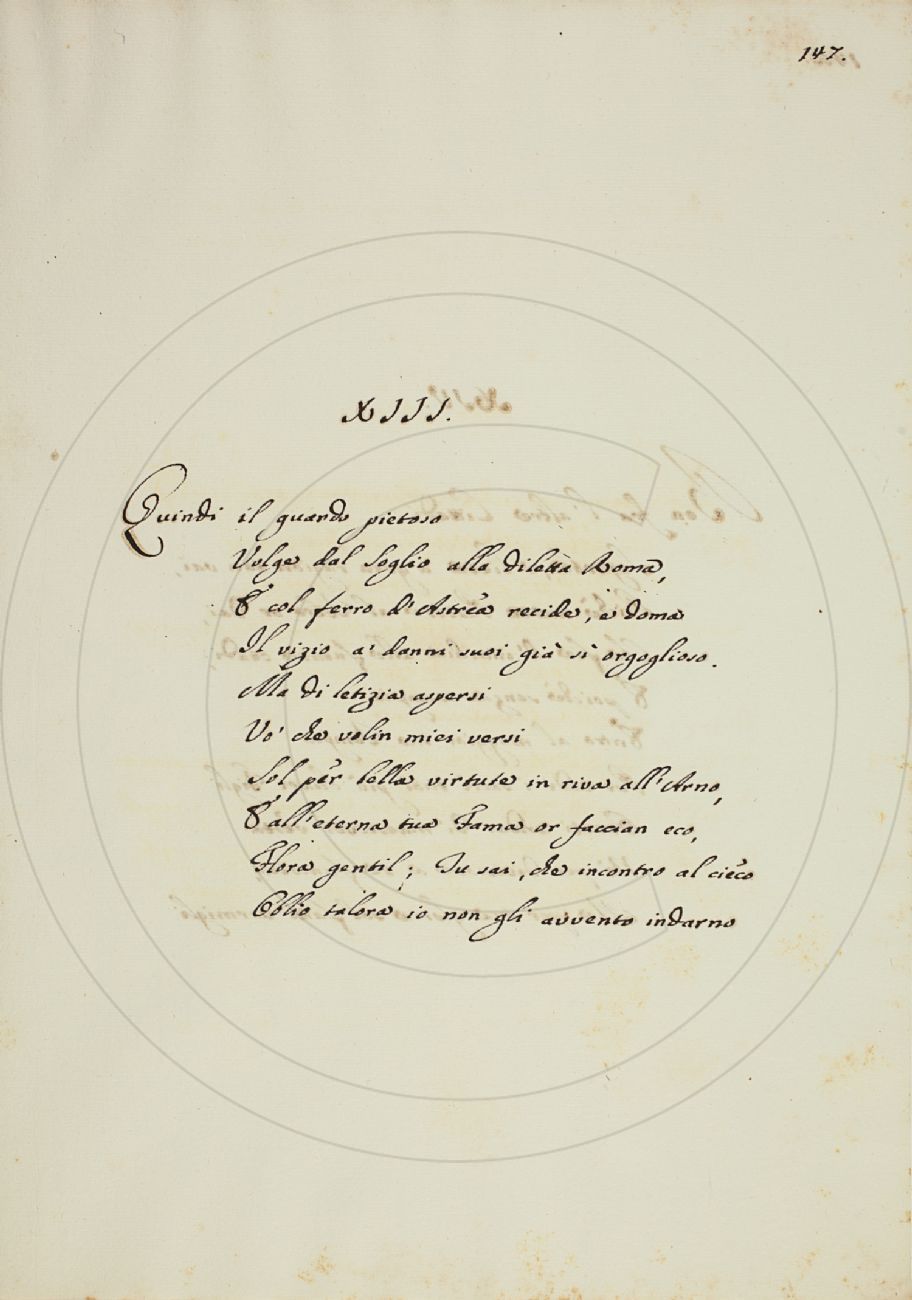 147.
XIII.
Quindi il guardo pietoso
Volge dal Soglio alla diletta Roma,
E col ferro d'Astrea recide, e doma
Il vizio a' danni suoi già sì orgoglioso.
Ma di letizia aspersi
Vo' che volin miei versi
Sol per bella virtute in riva all'Arno,
E all'eterna tua Fama or faccian eco,
Flora gentil; Tu sai, che incontro al cieco
Oblio talora io non gli avvento indarno